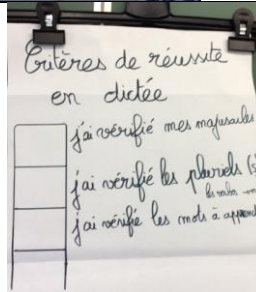 Critères de réussite
en dictée
j'ai vérifié mes majuscules
j'ai vérifié les pluriels (s
les
j'ai vérifié les mots à